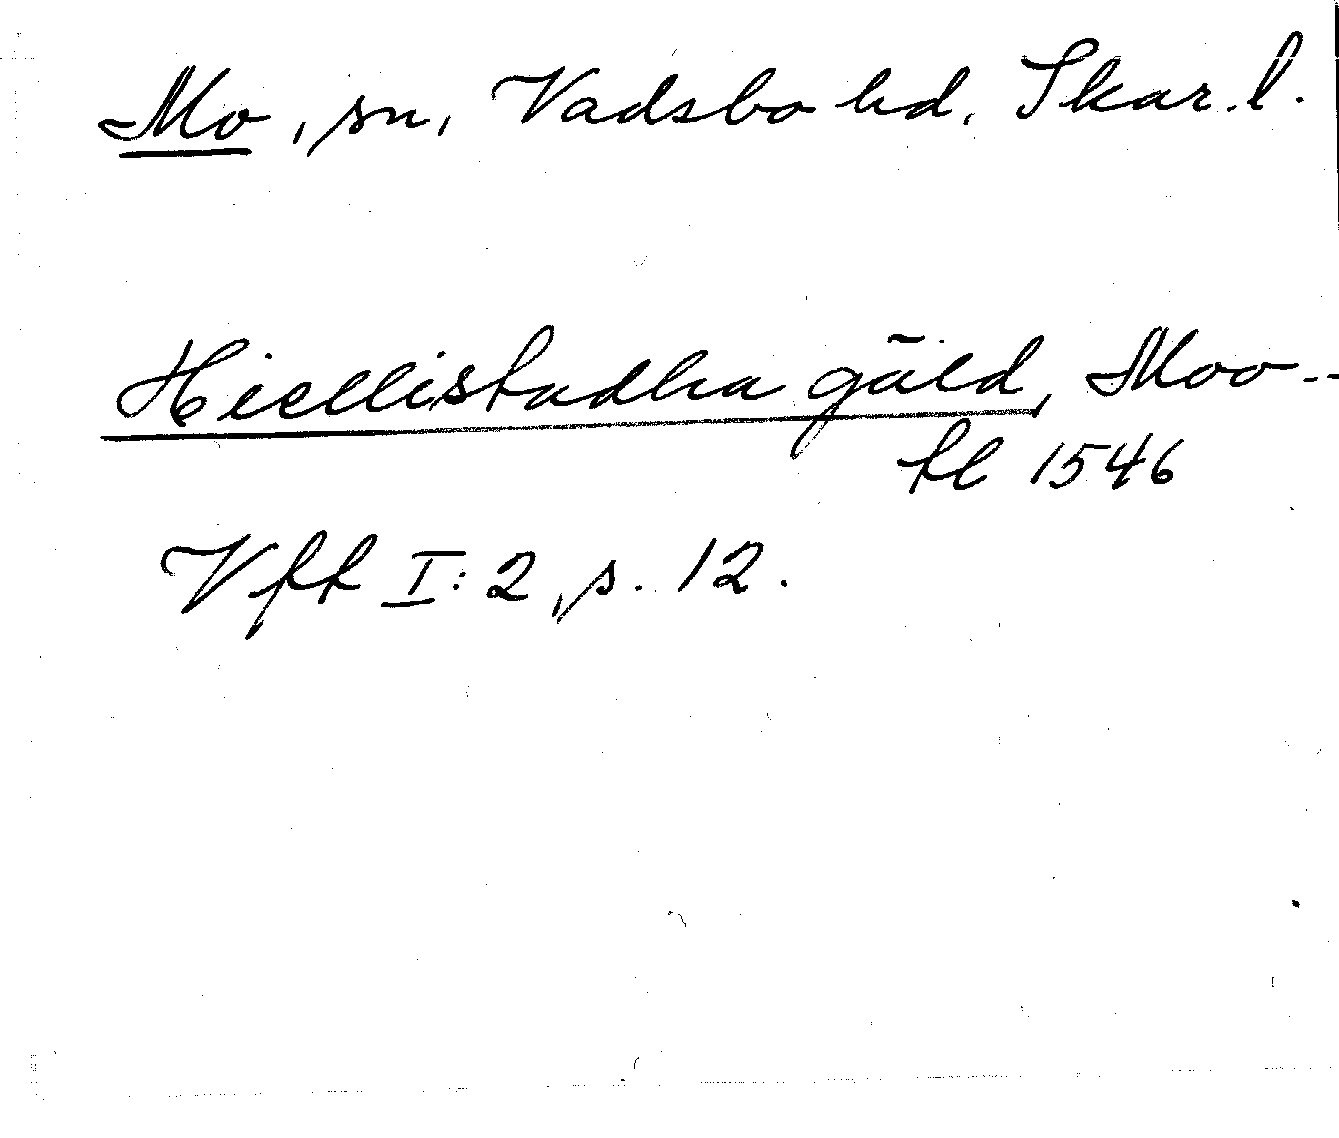 Mo, sn, Vadsbo hd. Skar.l.
Hiellistadha gäld, Moo--
kl 1546
Vff I:2, s. 12.